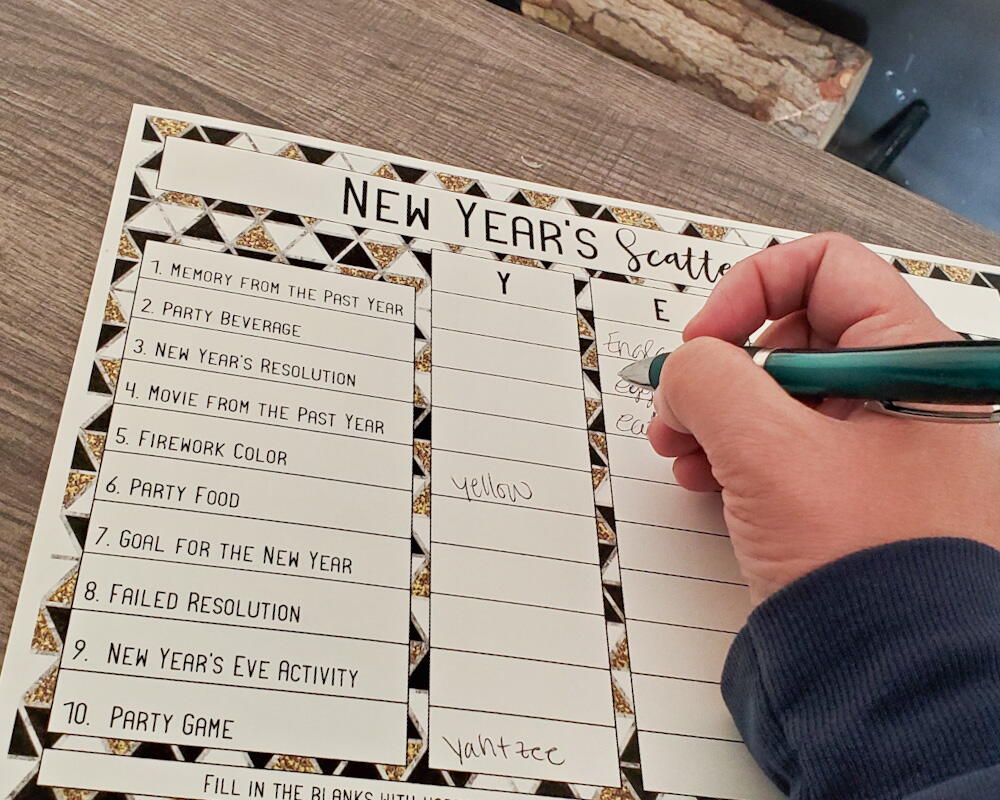 NEW YEAR'S Scatte
Y
E
1. MEMORY FROM THE PAST YEAR
2. PARTY BEVERAGE
3. NEW YEAR'S RESOLUTION
4. MOVIE FROM THE PAST YEAR
5. FIREWORK COLOR
yellow
6. PARTY FOOD
7. GOAL FOR THE NEW YEAR
8. FAILED RESOLUTION
9. NEW YEAR'S EVE ACTIVITY
10. PARTY GAME
yahtzee
FILL IN THE BLANKS WITH